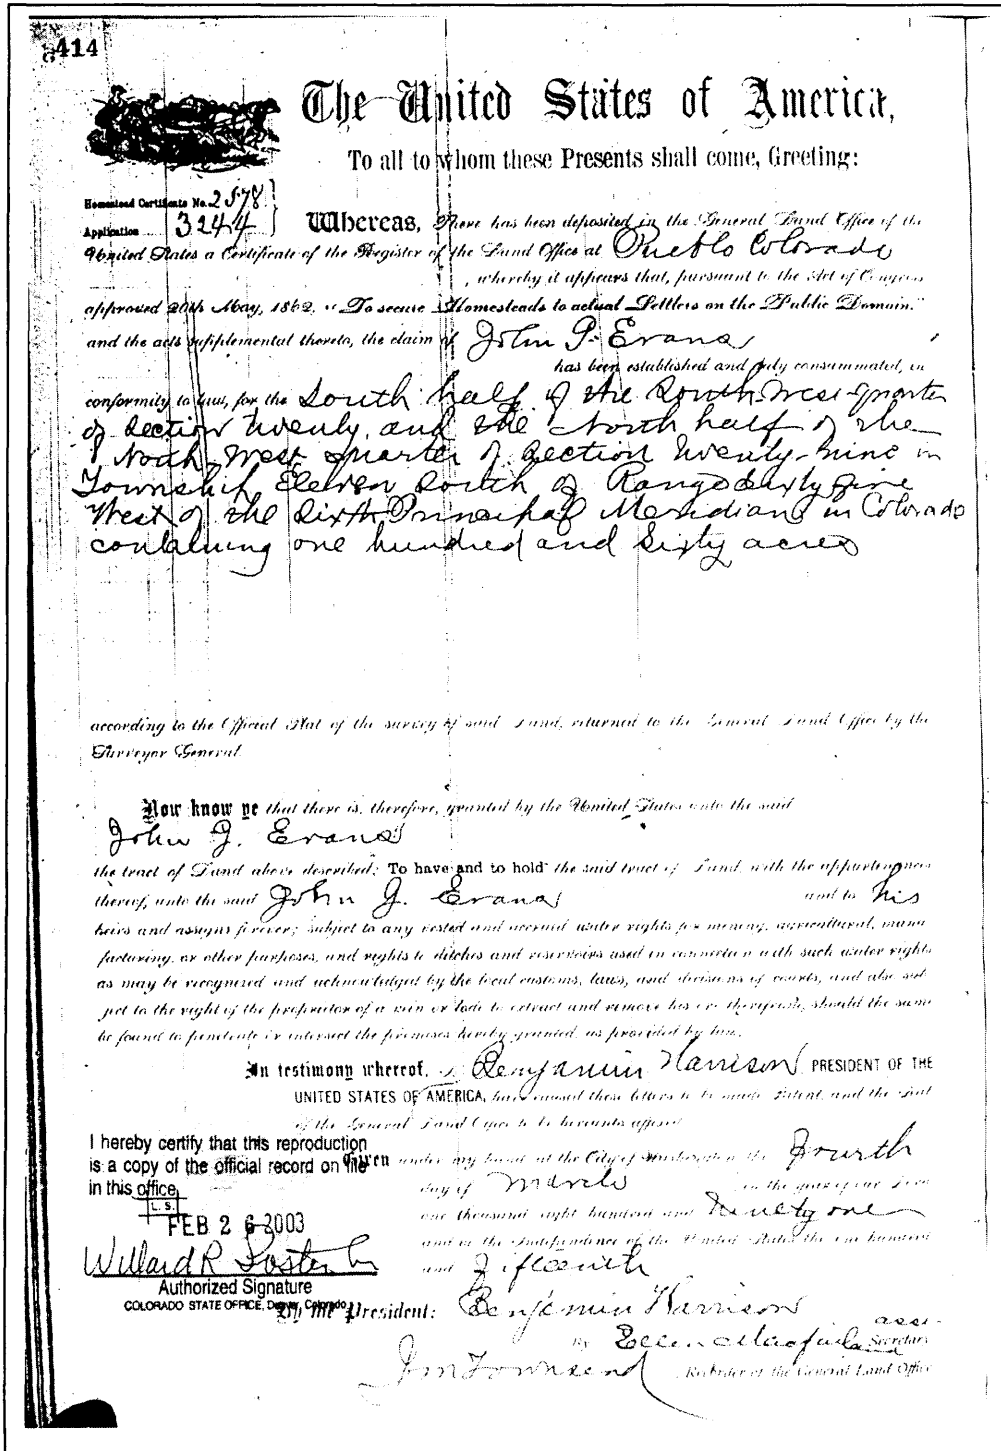 414
The United States of America,
To all to whom these Presents shall come, Greeting:
Homestead Certificate No. 2578
Application 3244
Whereas, There has been deposited in the General Land Office of the
United States a Certificate of the Register of the Land Office at Pueblo Colorado
, whereby it appears that, pursuant to the Act of Congress
approved 20th May, 1862, "To secure Homesteads to actual Settlers on the Public Domain."
and the acts supplemental thereto, the claim of John P. Evans
has been established and duly consummated, in
conformity to law, for the South half of the South West quarter
of Section twenty, and the North half of the
North West quarter of Section twenty-nine in
Township Eleven South of Range Sixty five
West of the Sixth Principal Meridian in Colorado
containing one hundred and sixty acres
according to the Official Plat of the survey of said Land, returned to the General Land Office by the
Surveyor General.
Now know ye that there is, therefore, granted by the United States unto the said
John J. Evans
the tract of Land above described; To have and to hold the said tract of Land, with the appurtenances
thereof, unto the said John J. Evans and to his
heirs and assigns forever; subject to any vested and accrued water rights for mining, agricultural, manu
facturing, or other purposes, and rights to ditches and reservoirs used in connection with such water rights
as may be recognized and acknowledged by the local customs, laws, and decisions of courts, and also sub
ject to the right of the proprietor of a vein or lode to extract and remove his ore therefrom, should the same
be found to penetrate or intersect the premises hereby granted, as provided by law.
In testimony whereof, I, Benjamin Harrison PRESIDENT OF THE
UNITED STATES OF AMERICA, have caused these letters to be made Patent, and the Seal
of the General Land Office to be hereunto affixed.
I hereby certify that this reproduction
is a copy of the official record on file
in this office.
L. S.
FEB 26 2003
Willard R
Authorized Signature
COLORADO STATE OFFICE, Denver, Colorado
Given under my hand at the City of Washington the Fourth
day of March in the year of our Lord
one thousand eight hundred and Ninety one
and of the Independence of the United States the one hundred
and Fifteenth
By the President: Benjamin Harrison
By Ellen Macfarland asst. Secretary
J M Townsend Recorder of the General Land Office